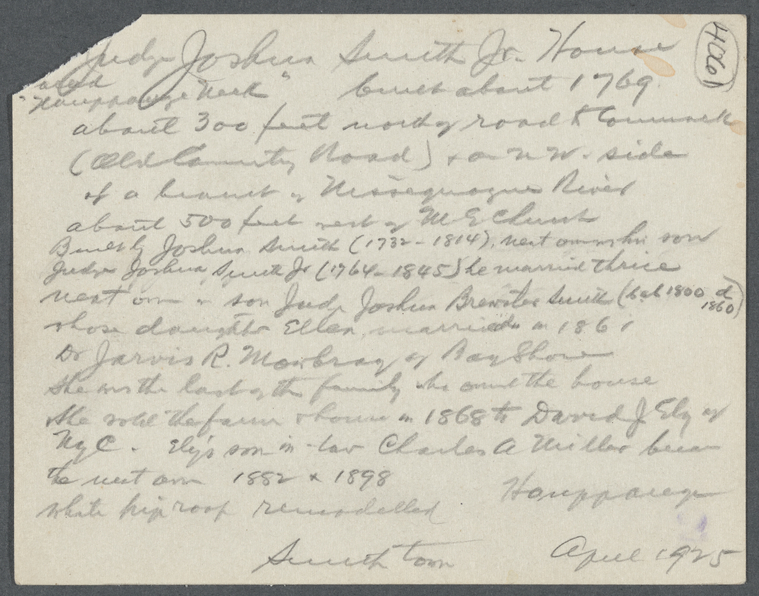 4061
Judge Joshua Smith Jr. House
"Hauppauge Neck" built about 1769
about 300 feet north of road to Commack
(Old Country Road) & on N.W. side
of a branch of Nissequogue River
about 500 feet west of M E Church
Built by Joshua Smith (1732-1814), next owner his son
Judge Joshua Smith Jr (1764-1845) he married thrice
next own son Judge Joshua Brewster Smith (bab 1800 d 1860)
whose daughter Ellen married in 1861
Dr Jarvis R. Mowbray of Bay Shore
She was the last of the family who owned the house
She sold the farm & house in 1868 to David J Ely of
NYC. Ely's son in-law Charles A Miller became
the next own 1882 & 1898
white hip roof remodelled Hauppauge
Smithtown April 1925